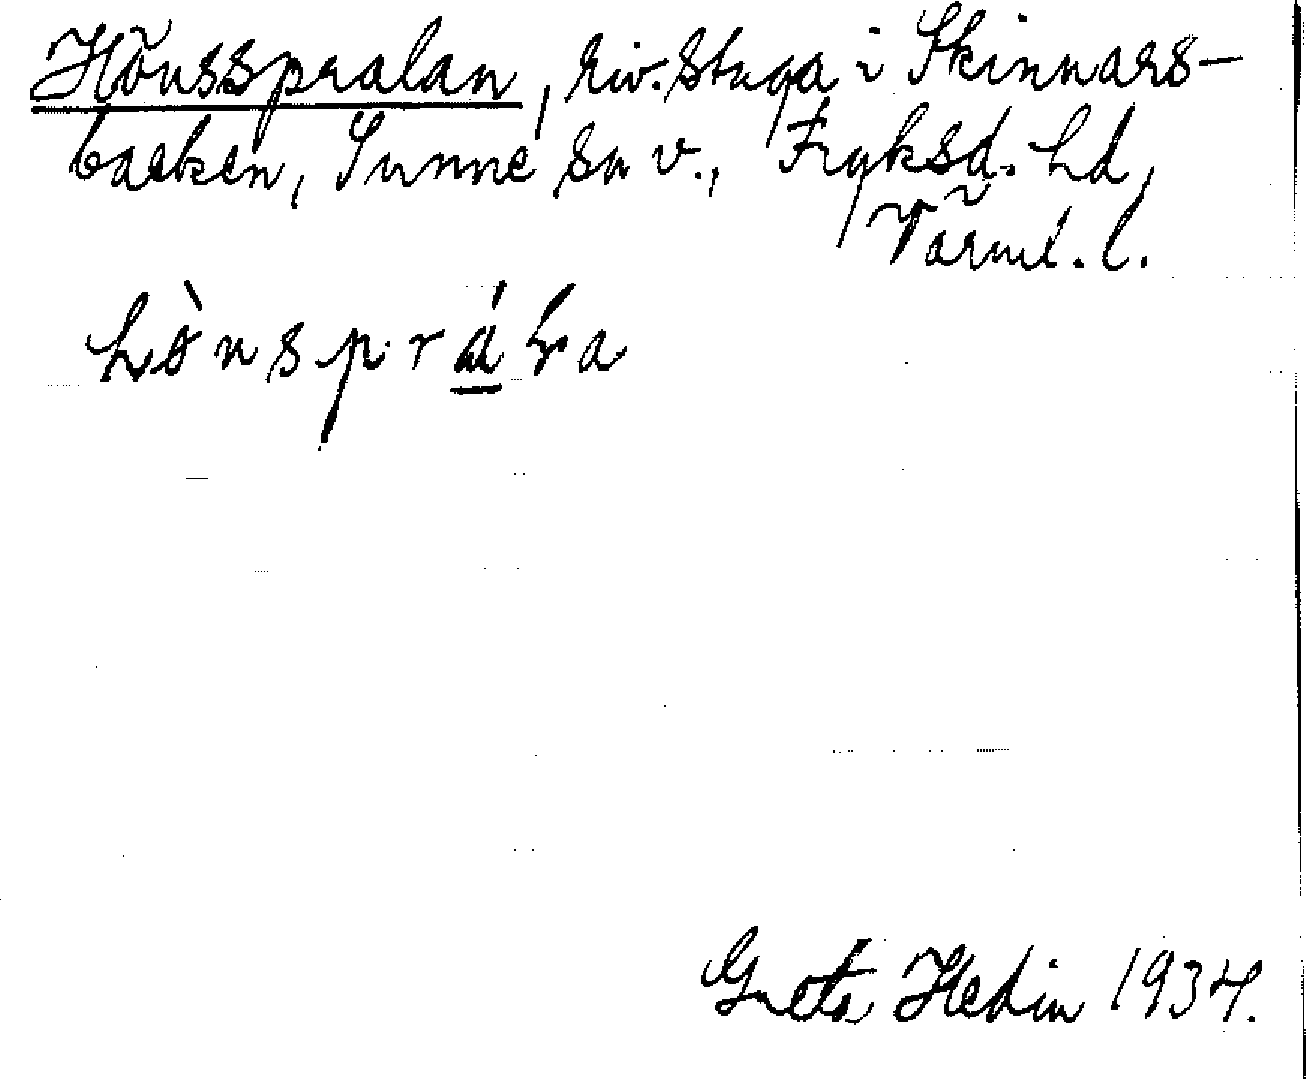 Hönsspralan, riv. stuga i Skinnars-
backen, Sunne sn v., Fryksd. hd,
Värml. l.
Greta Hedin 1934.